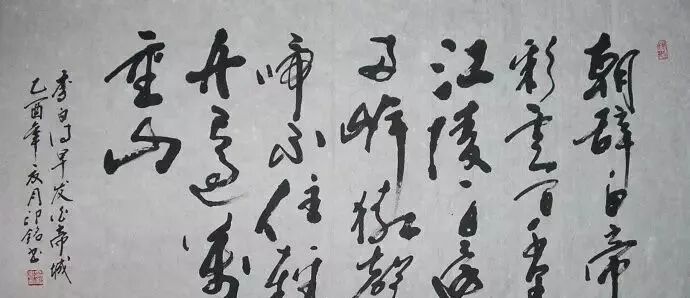 朝辞白帝
彩雲间千里
江陵一日還
两岸猿声
啼不住轻
舟已過萬
重山
李白诗早发白帝城
乙酉年夏月印铭书